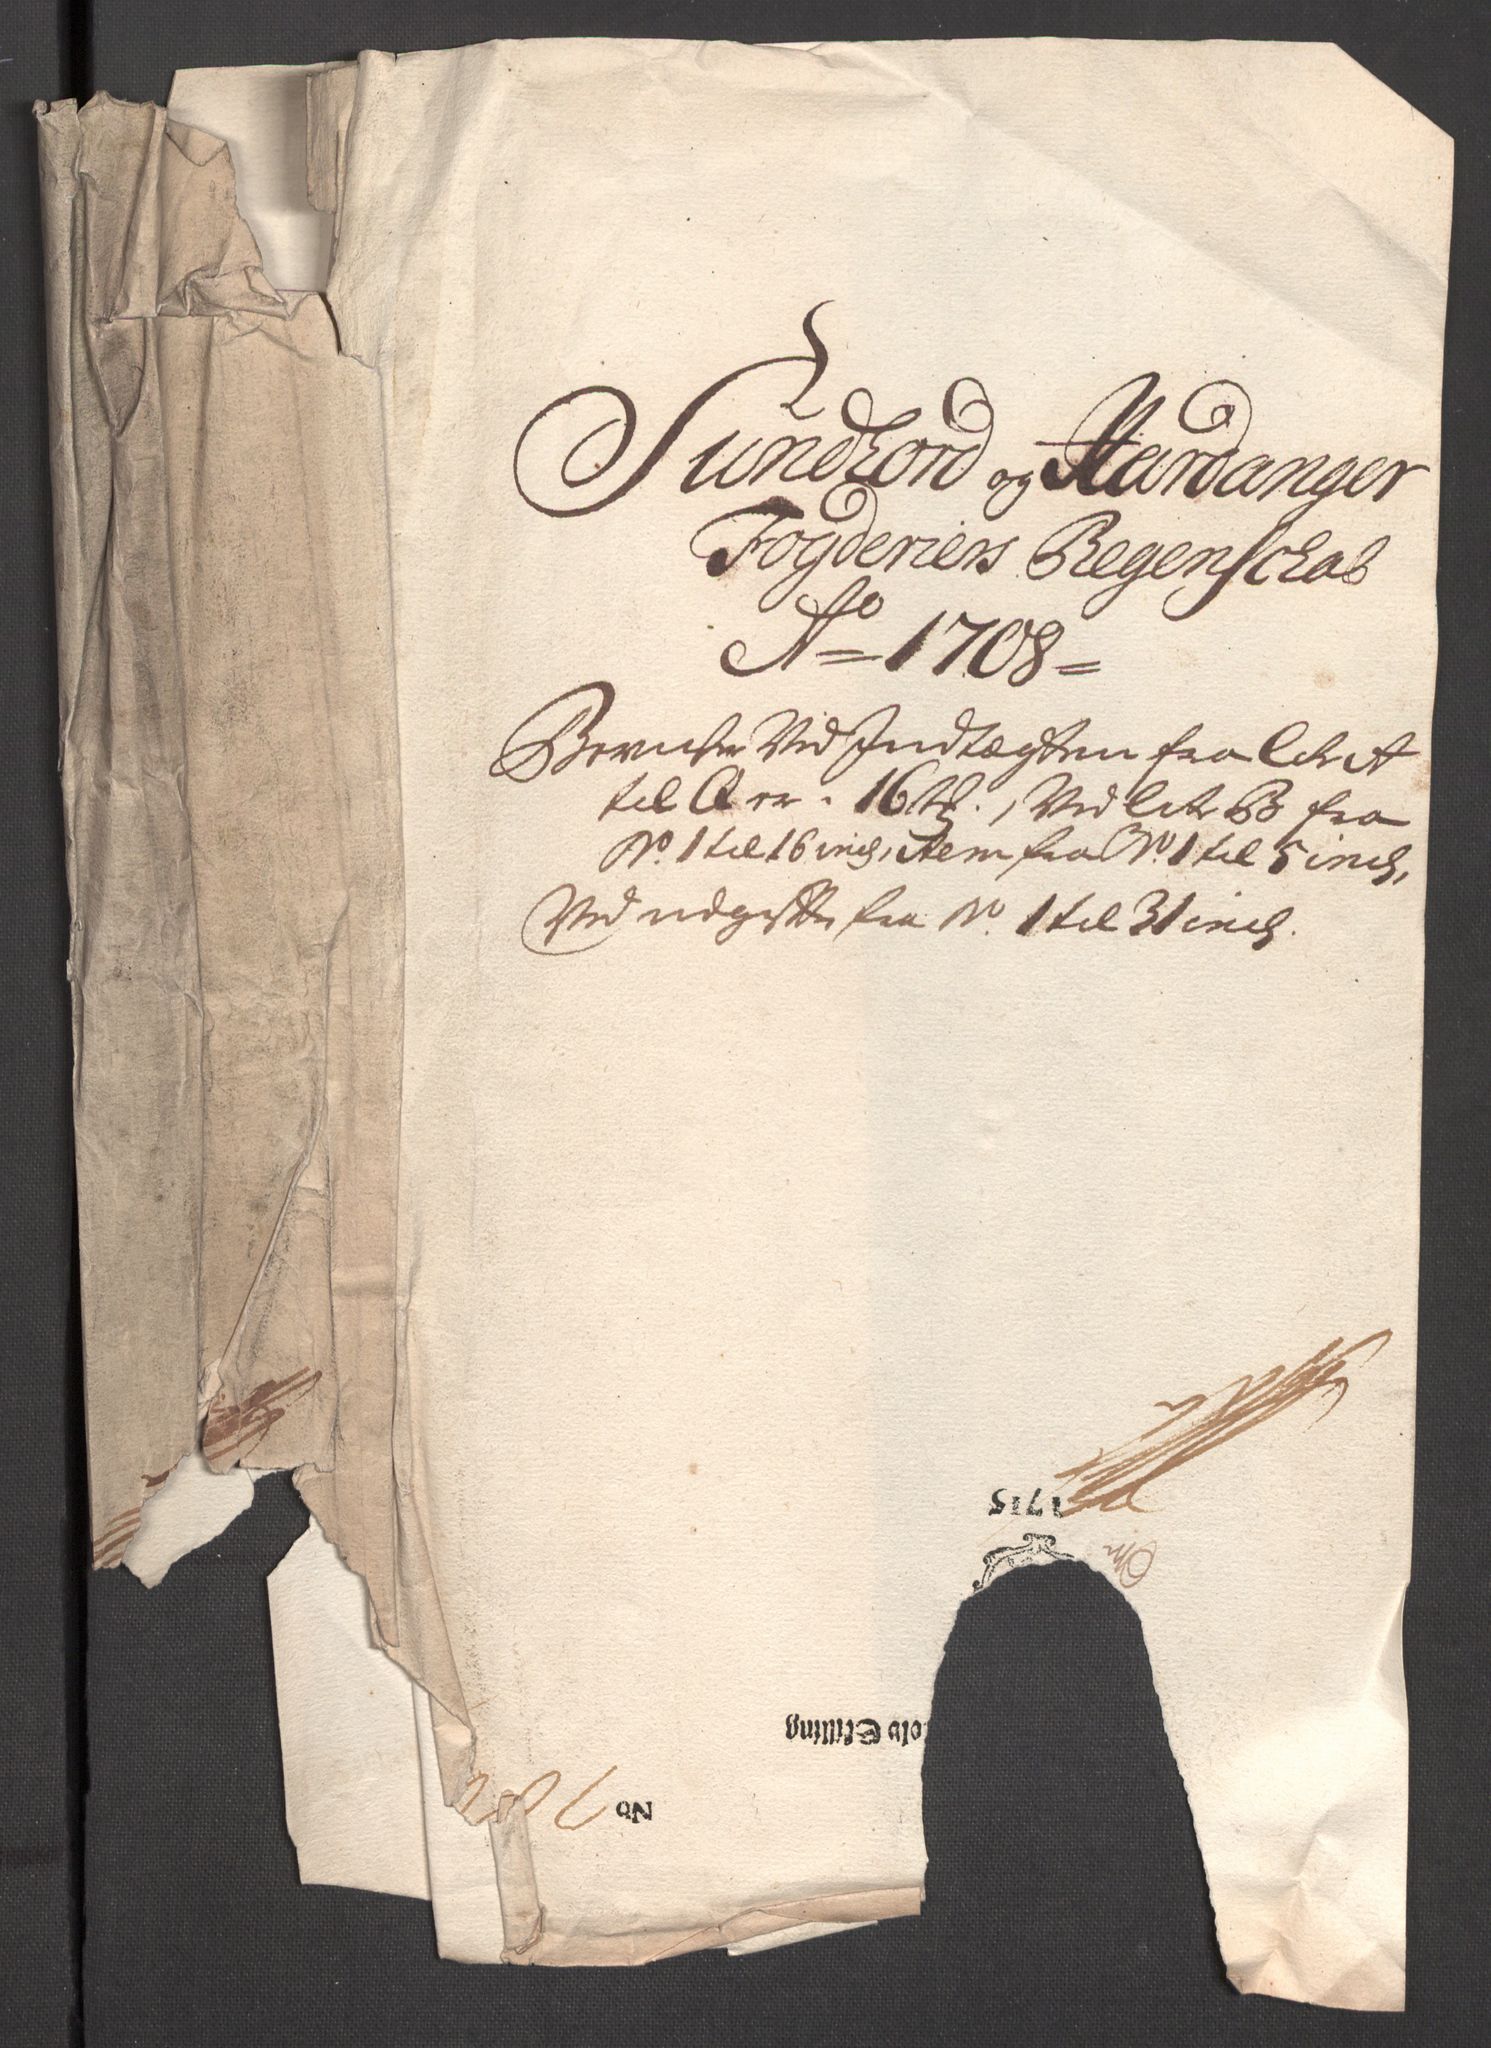 Sundhord og Hardanger
Fogderiers Regenschab
Ao 1708
Beviiser Ved Indtægten fra Litr A
til Q er 16 st., Ved Litr B fra
No. 1 til 16 incl, Item fra No. 1 til 5 incl,
Ved udgiffte fra No. 1 til 31 incl.
1715
Skilling
No 787